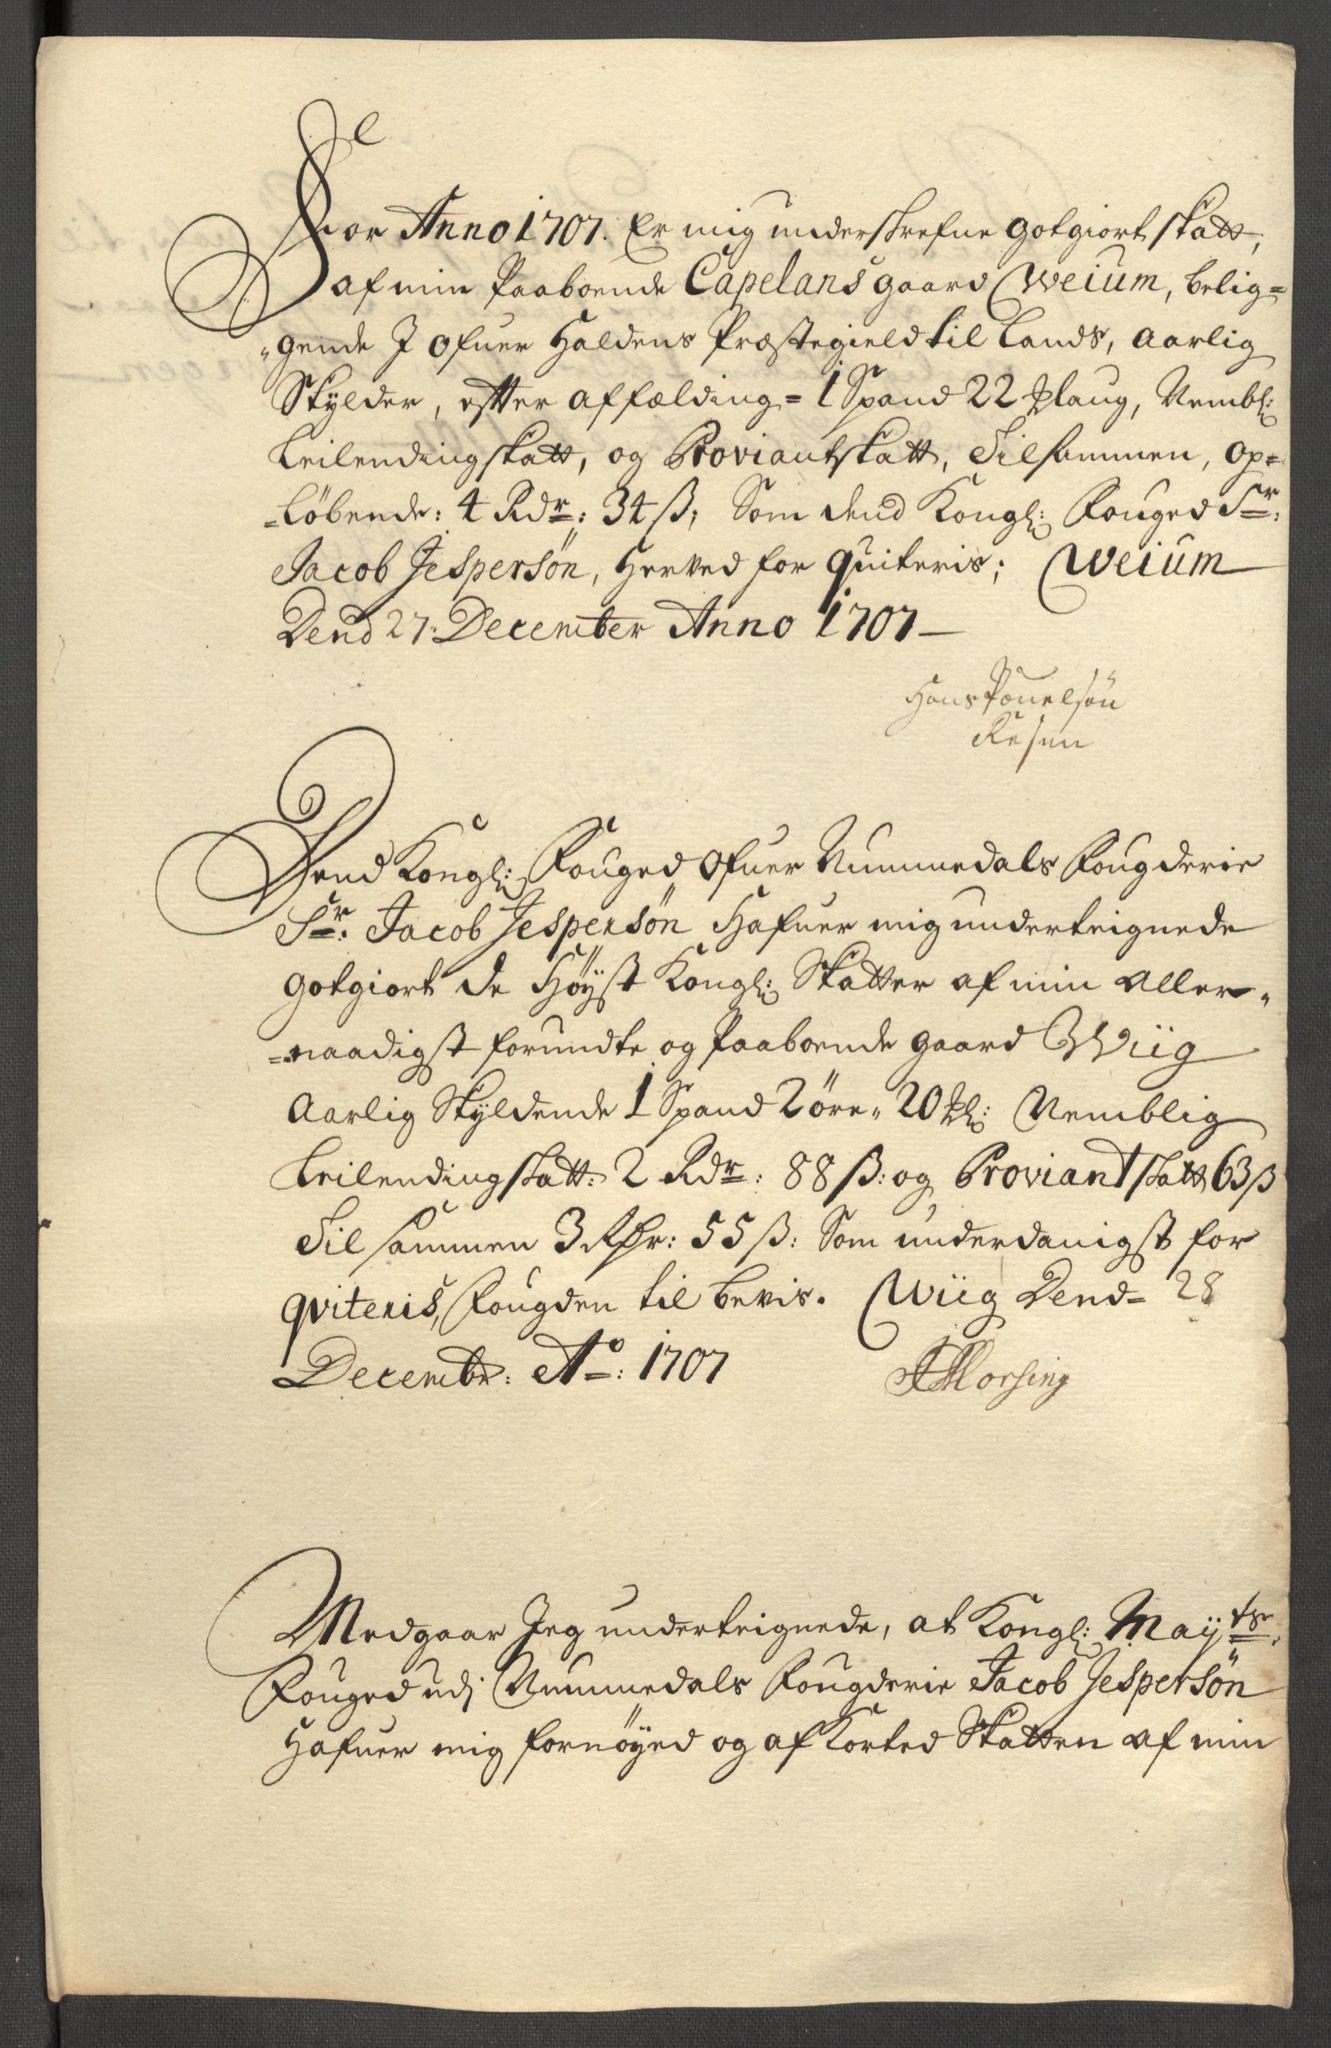 For Anno 1707. Er mig underskrefne gotgiort skatt,
af min Paaboende Capelans gaard Weium, belig=
=gende J Ofuer Haldens Præstegield til Lands, aarlig
Skylder, efter affælding = 1 Spand 22 Mlaug, Nembl:
Leilendingskatt, og Proviantskatt, Tilsammen, op=
=løbende: 4 Rdr: 34 ß; Som dend Kongl: Fouged Sr:
Jacob Jespersøn, herved for quiteris; Weium
Dend 27: December Anno 1707 –
Hans Pouelsøn
Resen
Dend Kongl: Fouged Ofuer Nummedals Fougderie
Sr: Jacob Jespersøn Hafuer mig underteignede
gotgiort de Høyst Kongl: Skatter af min Aller=
=naadigst forundte og Paaboende gaard Wiig
Aarlig Skyldende 1 Spand 2 øre 20 Ml: Nemblig
Leilendingskatt: 2 Rdr: 88 ß: og Proviantskatt 63 ß
Tilsammen 3 Rdr: 55 ß: Som underdanigst for
qviteris, Fougden til bevis. Wiig Dend= 28
Decembr: Ao: 1707 Morsing
Medgaar Jeg underteignede, at Kongl: Mayts:
Fouged udj Nummedals Fougderie Jacob Jespersøn
Hafuer mig fornøyed og afkorted Skatten af min